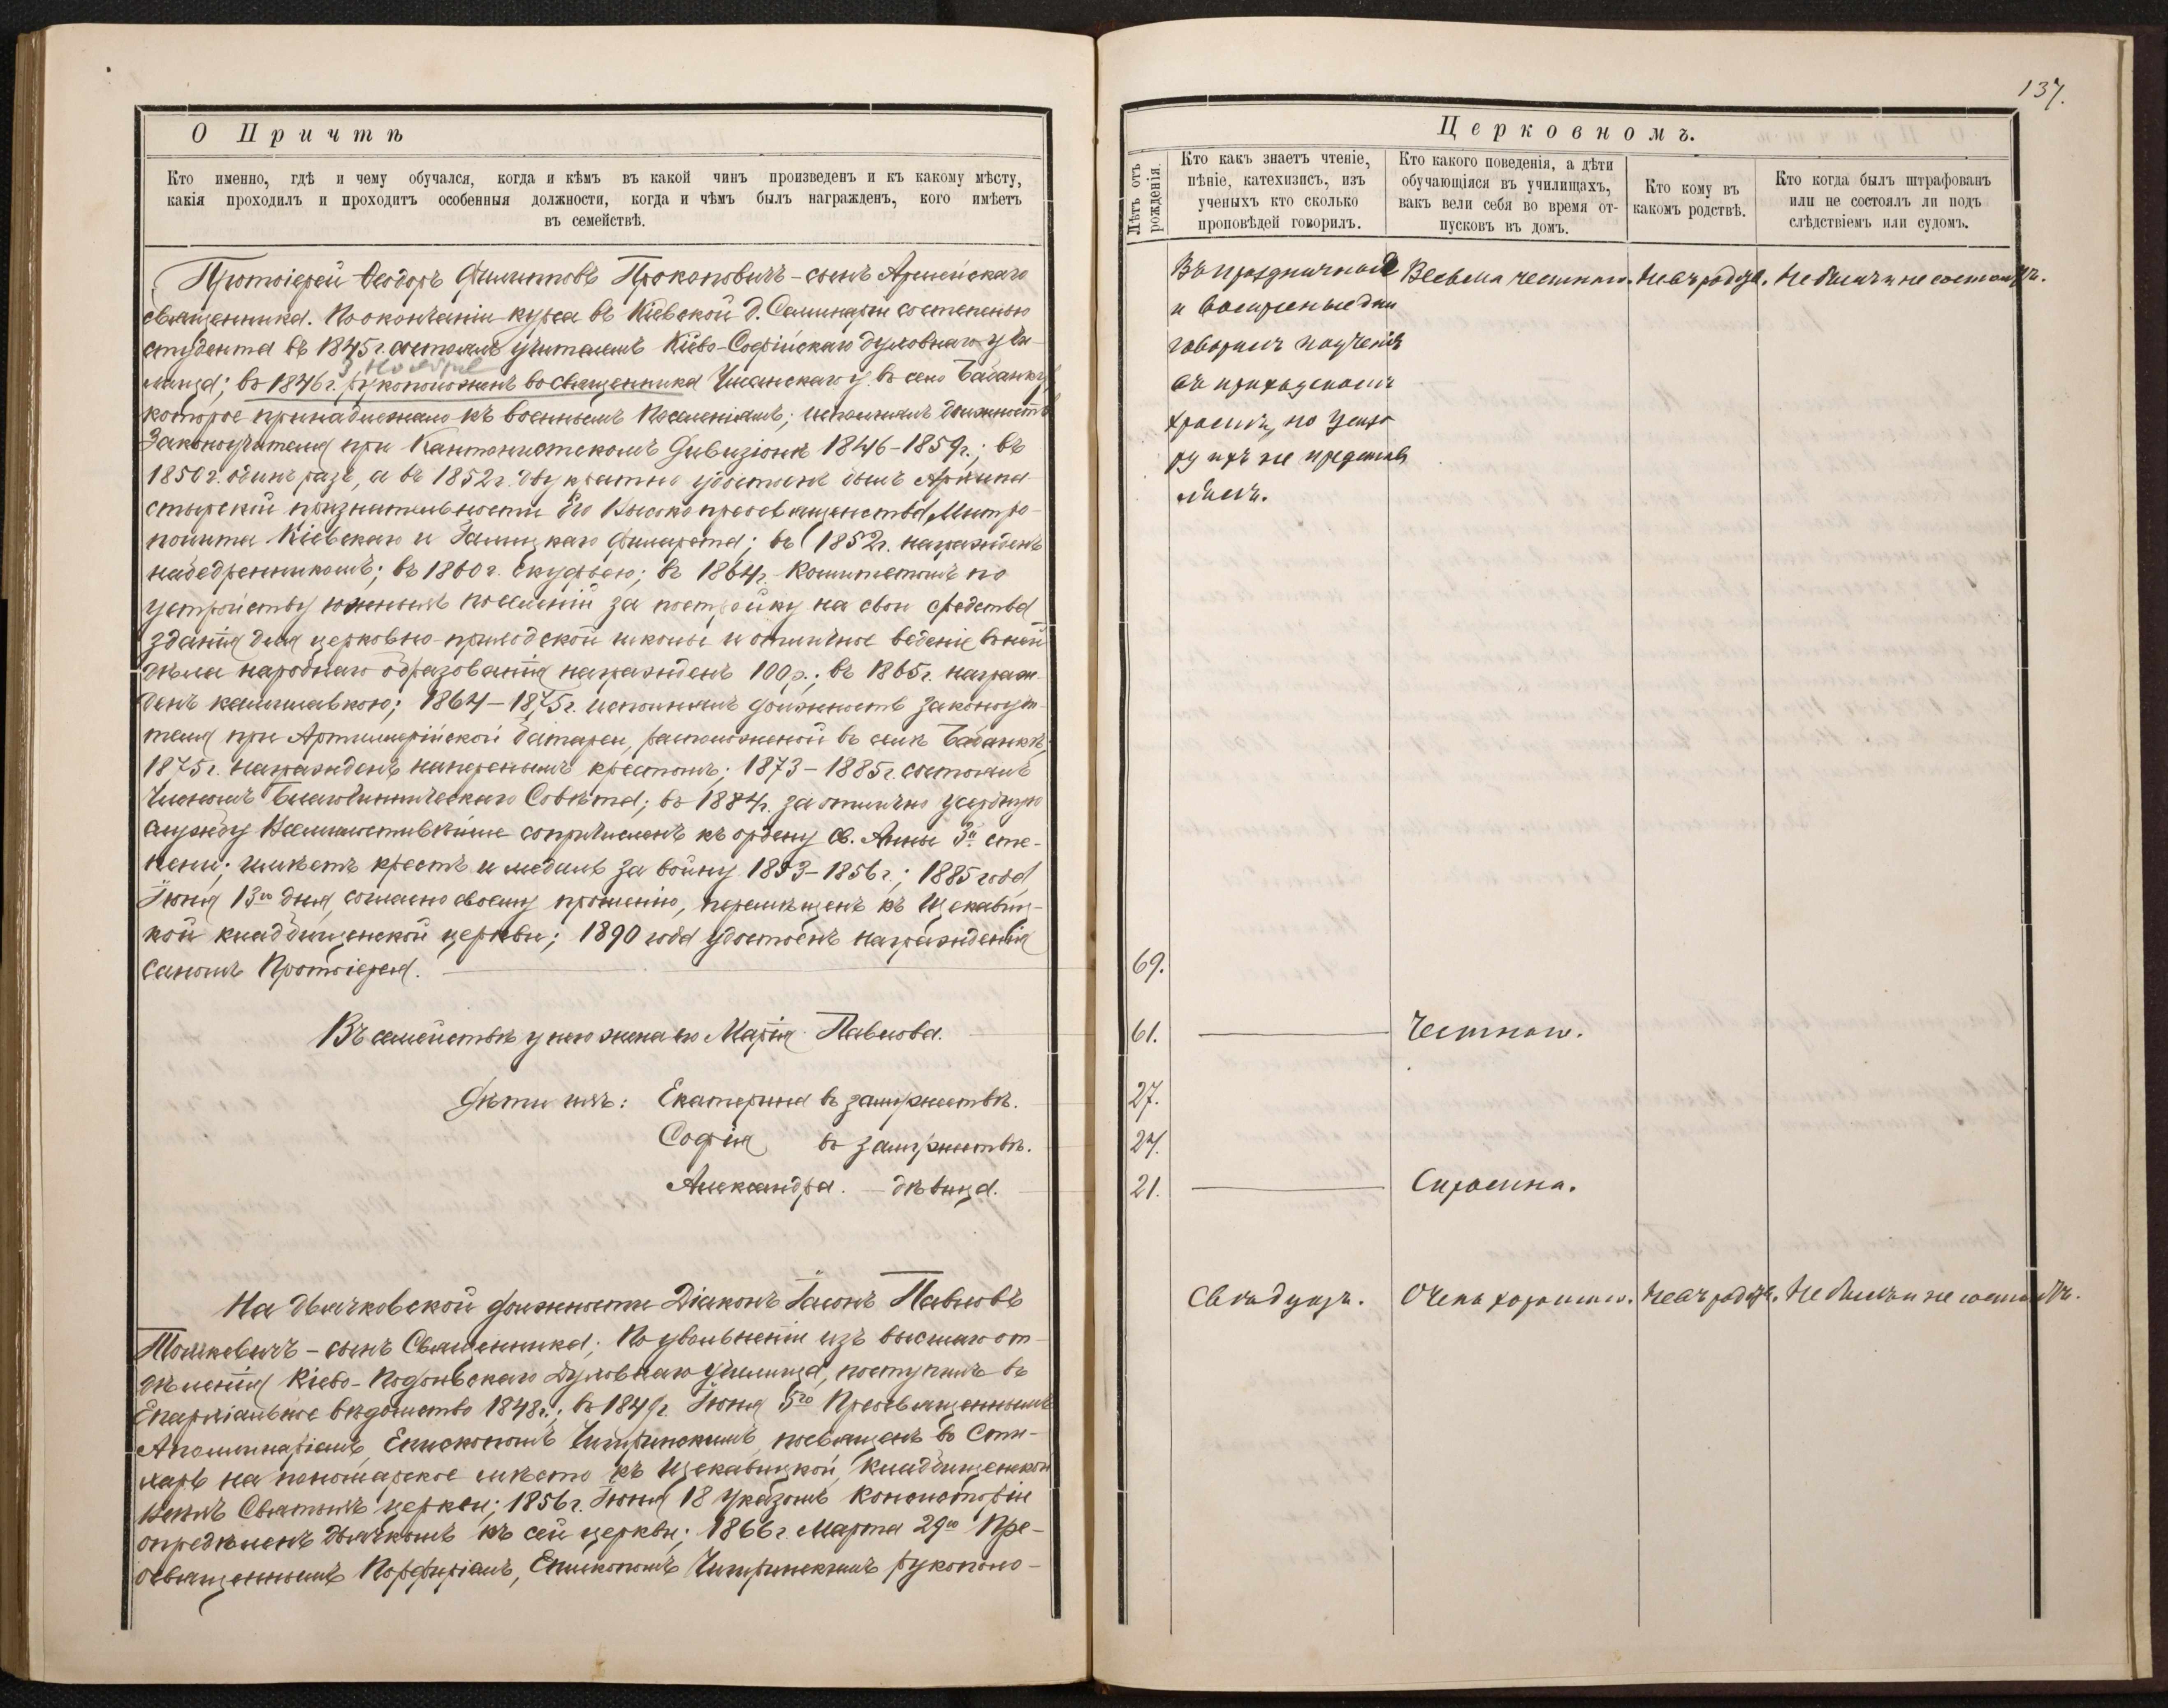 О Причтѣ
Кто именно, гдѣ и чему обучался, когда и кѣмъ въ какой чинъ произведенъ и къ какому мѣсту,
какія проходилъ и проходитъ особенныя должности, когда и чѣмъ былъ награжденъ, кого имѣетъ
въ семействѣ.
Протоіерей Ѳеодоръ Филипповъ Прокоповичъ – сынъ Армейскаго
священника. По окончаніи курса въ Кіевской д. Семинаріи со степенью
студента въ 1845 г. состоялъ учителемъ Кіево-Софійскаго духовнаго учи-
3 Ноября
лища; въ 1846 г. рукоположенъ во священника Уманскаго у. въ село Бабанку,
которое принадлежало къ военнымъ поселеніямъ; исполнялъ должность
Законоучителя при Кантонистскомъ Дивизіонѣ 1846–1859 г.; въ
1850 г. одинъ разъ, а въ 1852 г. двукратно удостоенъ былъ Архипа-
стырской признательности Его Высокопреосвященства, Митро-
полита Кіевскаго и Галицкаго Филарета; въ 1852 г. награжденъ
набедренникомъ; въ 1860 г. скуфьею; въ 1864 г. Комитетомъ по
устройству южныхъ поселеній за постройку на свои средства
зданія для церковно-приходской школы и отличное веденіе въ ней
дѣла народнаго образованія награжденъ 100 р.; въ 1865 г. награж-
денъ камилавкою; 1864–1875 г. исполнялъ должность законоучи-
теля при Артиллерійской батареи, расположеной въ селѣ Бабанкѣ;
1875 г. награжденъ наперснымъ крестомъ; 1873–1885 г. состоялъ
Членомъ Благочинническаго Совѣта; въ 1884 г. за отлично усердную
службу Всемилостивѣйше сопричисленъ къ ордену Св. Анны 3й сте-
пени; имѣетъ крестъ и медаль за войну 1853–1856 г.; 1885 года,
Іюня 13го дня, согласно своему прошенію, перемѣщенъ къ Щекавиц-
кой кладбищенской церкви; 1890 года удостоенъ награжденія
саномъ Протоіерея.
Въ семействѣ у него жена его Марія Павлова.
Дѣти ихъ: Екатерина въ замужествѣ.
Софія въ замужествѣ.
Александра. – дѣвица.
На дьячковской должности Діаконъ Іасонъ Павловъ
– сынъ Священника; По увольненіи изъ высшаго от-
дѣленія Кіево-Подольскаго Духовнаго училища, поступилъ въ
Епархіальное вѣдомство 1848 г.; въ 1849 г. Іюня 5го Преосвященнымъ
Аполлинаріемъ, Епископомъ Чигиринскимъ, посвященъ въ Сти-
харь на пономарское мѣсто къ Щекавицкой, кладбищенской
Всѣхъ Святыхъ церкви; 1856 г. Іюня 18 Указомъ Консисторіи
опредѣленъ дьячкомъ къ сей церкви; 1866 г. Марта 29го Пре-
освященнымъ Порфиріемъ, Епископомъ Чигиринскимъ рукополо-
137.
Церковномъ.
Лѣтъ отъ рожденія.
Кто какъ знаетъ чтеніе,
пѣніе, катехизисъ, изъ
ученыхъ кто сколько
проповѣдей говорилъ.
Кто какого поведенія, а дѣти
обучающіяся въ училищахъ,
вакъ вели себя во время от-
пусковъ въ домъ.
Кто кому въ
какомъ родствѣ.
Кто когда былъ штрафованъ
или не состоялъ ли подъ
слѣдствіемъ или судомъ.
Въ праздничные
и воскресные дни
говорилъ поученія
въ приходскомъ
храмѣ, но цензо
ру ихъ не представ
лялъ.
Весьма честнаго. Не въ родствѣ. Не былъ и не состоитъ.
69.
61. Честнаго.
27.
24.
21. Скромна.
Свѣдущъ. Очень хорошаго. Не въ родствѣ. Не былъ и не состоитъ.